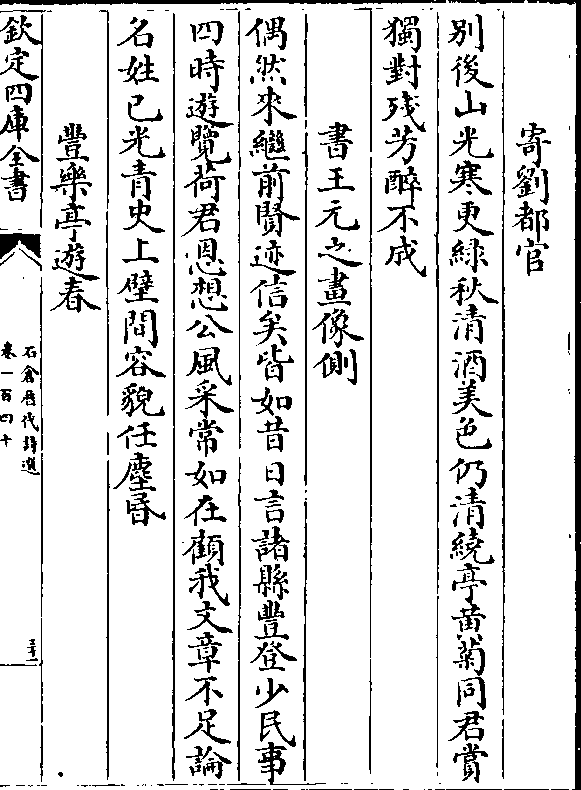 寄劉都官
別後山光寒更緑秋清酒美色仍清繞亭黄菊同君賞
獨對殘芳醉不成
書王元之畫像側
偶然來繼前賢迹信矣皆如昔日言諸縣豐登少民事
四時遊覽荷君恩想公風采常如在顧我文章不足論
名姓已光青史上壁間容貌任塵昏
豐樂亭遊春
欽定四庫全書
石倉歷代詩選
卷一百四十